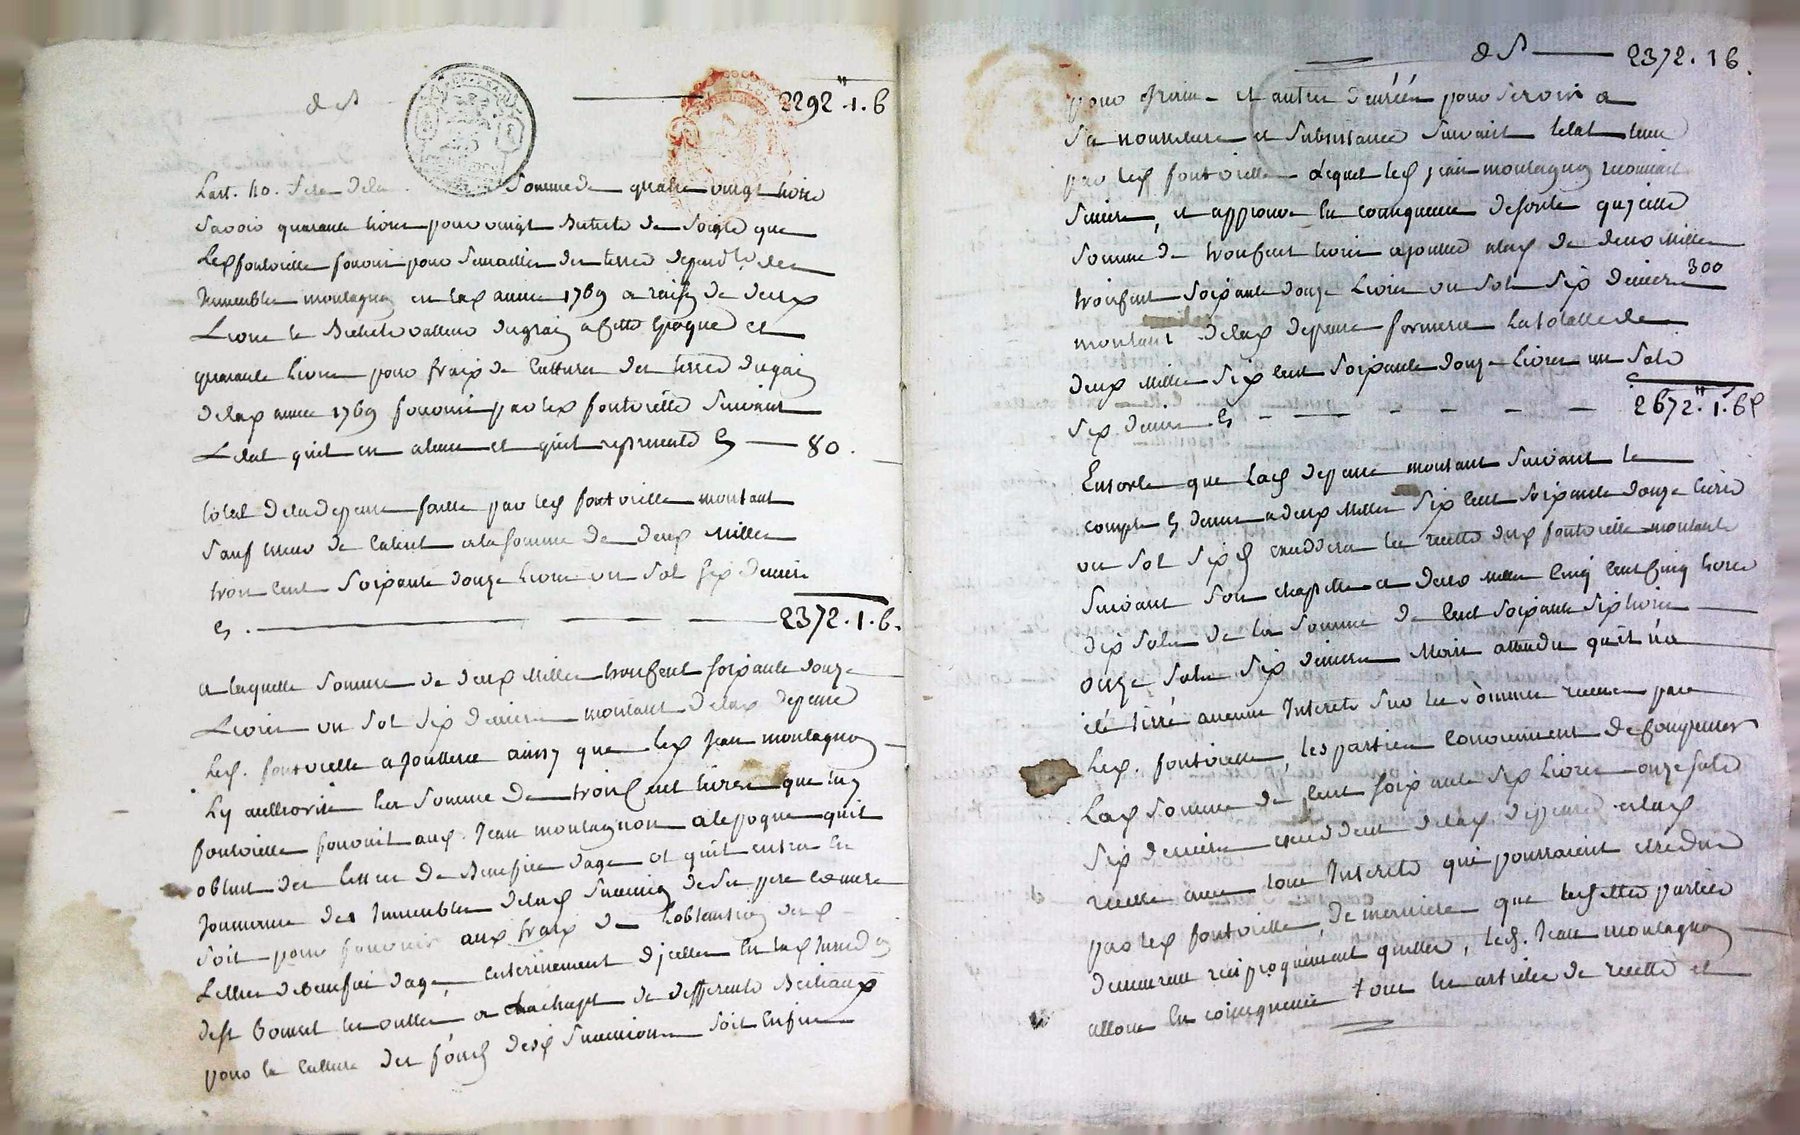 de S 2292" .1.6
Lart. 40. Sera dela Somme de quatre vingt livre
Savoir quarante livre pour vingt de Soigle que
Led fontvieille fournir pour Semailles des terres
Immeubles montagnon en lad annee 1769 a raison de deux
Livre le valleur du grain a cette Epoque et
quarante livre pour fraix de Cultures des terres
delad annee 1769 fourni par led fontvieille Suivant
Letat quil en a et quil represente Cy 80.
total dela depense faitte par led fontvieille montant
Sauf erreur de Calcul a la somme de deux Mille
trois Cent Soixante douze livre un Sol Six deniers
Cy. 2372.1.6.
a laquelle Somme de deux Mille troiscent soixante douze
Livres un Sol Six deniers montant delad depense
Led. fontvieille ajoutterat ainsy que led Jean montagnon
Ly authorise la Somme de trois cent livres que led
fontvieille fournit aud. Jean montagnon a lepoque quil
obtint des lettres de Benefice dage et quil entra en
Jouissance des Immeubles delad Succession de Son pere
Soit pour fournir aux fraix de Lobtention desd
Lettres de Benefice dage, enterinement dicelles en lad
Soit outre achapt de differents Bestiaux
pour la Culture des fonds desd Successions Soit Enfin
de S 2372.16.
pour grain et autres denrées pour Servir a
Sa nourriture et Subsistance Suivant letat tenu
par led fontvieille Lequel led jean montagnon reconnait
Sincere, et approuve En consequence de sorte quicelle
Somme de troiscent livres ajoutteé a celle de deux Mille
troiscent Soixante douze Livres un Sol Six deniers 300
montant delad depense formera la totalle de
deux Mille Six Cent Soixante douze Livres un Sols
Six deniers Cy 2672".1.6d
Ensorte que Lad depense montant Suivant le
compte Cy dessus a deux Mille Six Cent Soixante douze livres
un Sol Six d exceddera la recette dud fontvieille montante
Suivant Son chapitre a deux Mille Cinq Cent Cinq livres
dix Sols de la Somme de Cent Soixante Six livres
onze Sols Six deniers Mais attendu quil na
été tirré aucun Interets Sur les Sommes receues par
Led. fontvieille, les parties Conviennent de Compenser
Lad Somme de Cent Soixante Six Livres onze Sols
Six deniers exceddent delad depense alad
recette avec tous Interets qui pourraient etre dus
par led fontvieille, de maniere que lesdittes parties
demeurent reciproquement quittes, led. Jean montagnon
alloue En consequence tous les articles de recette et